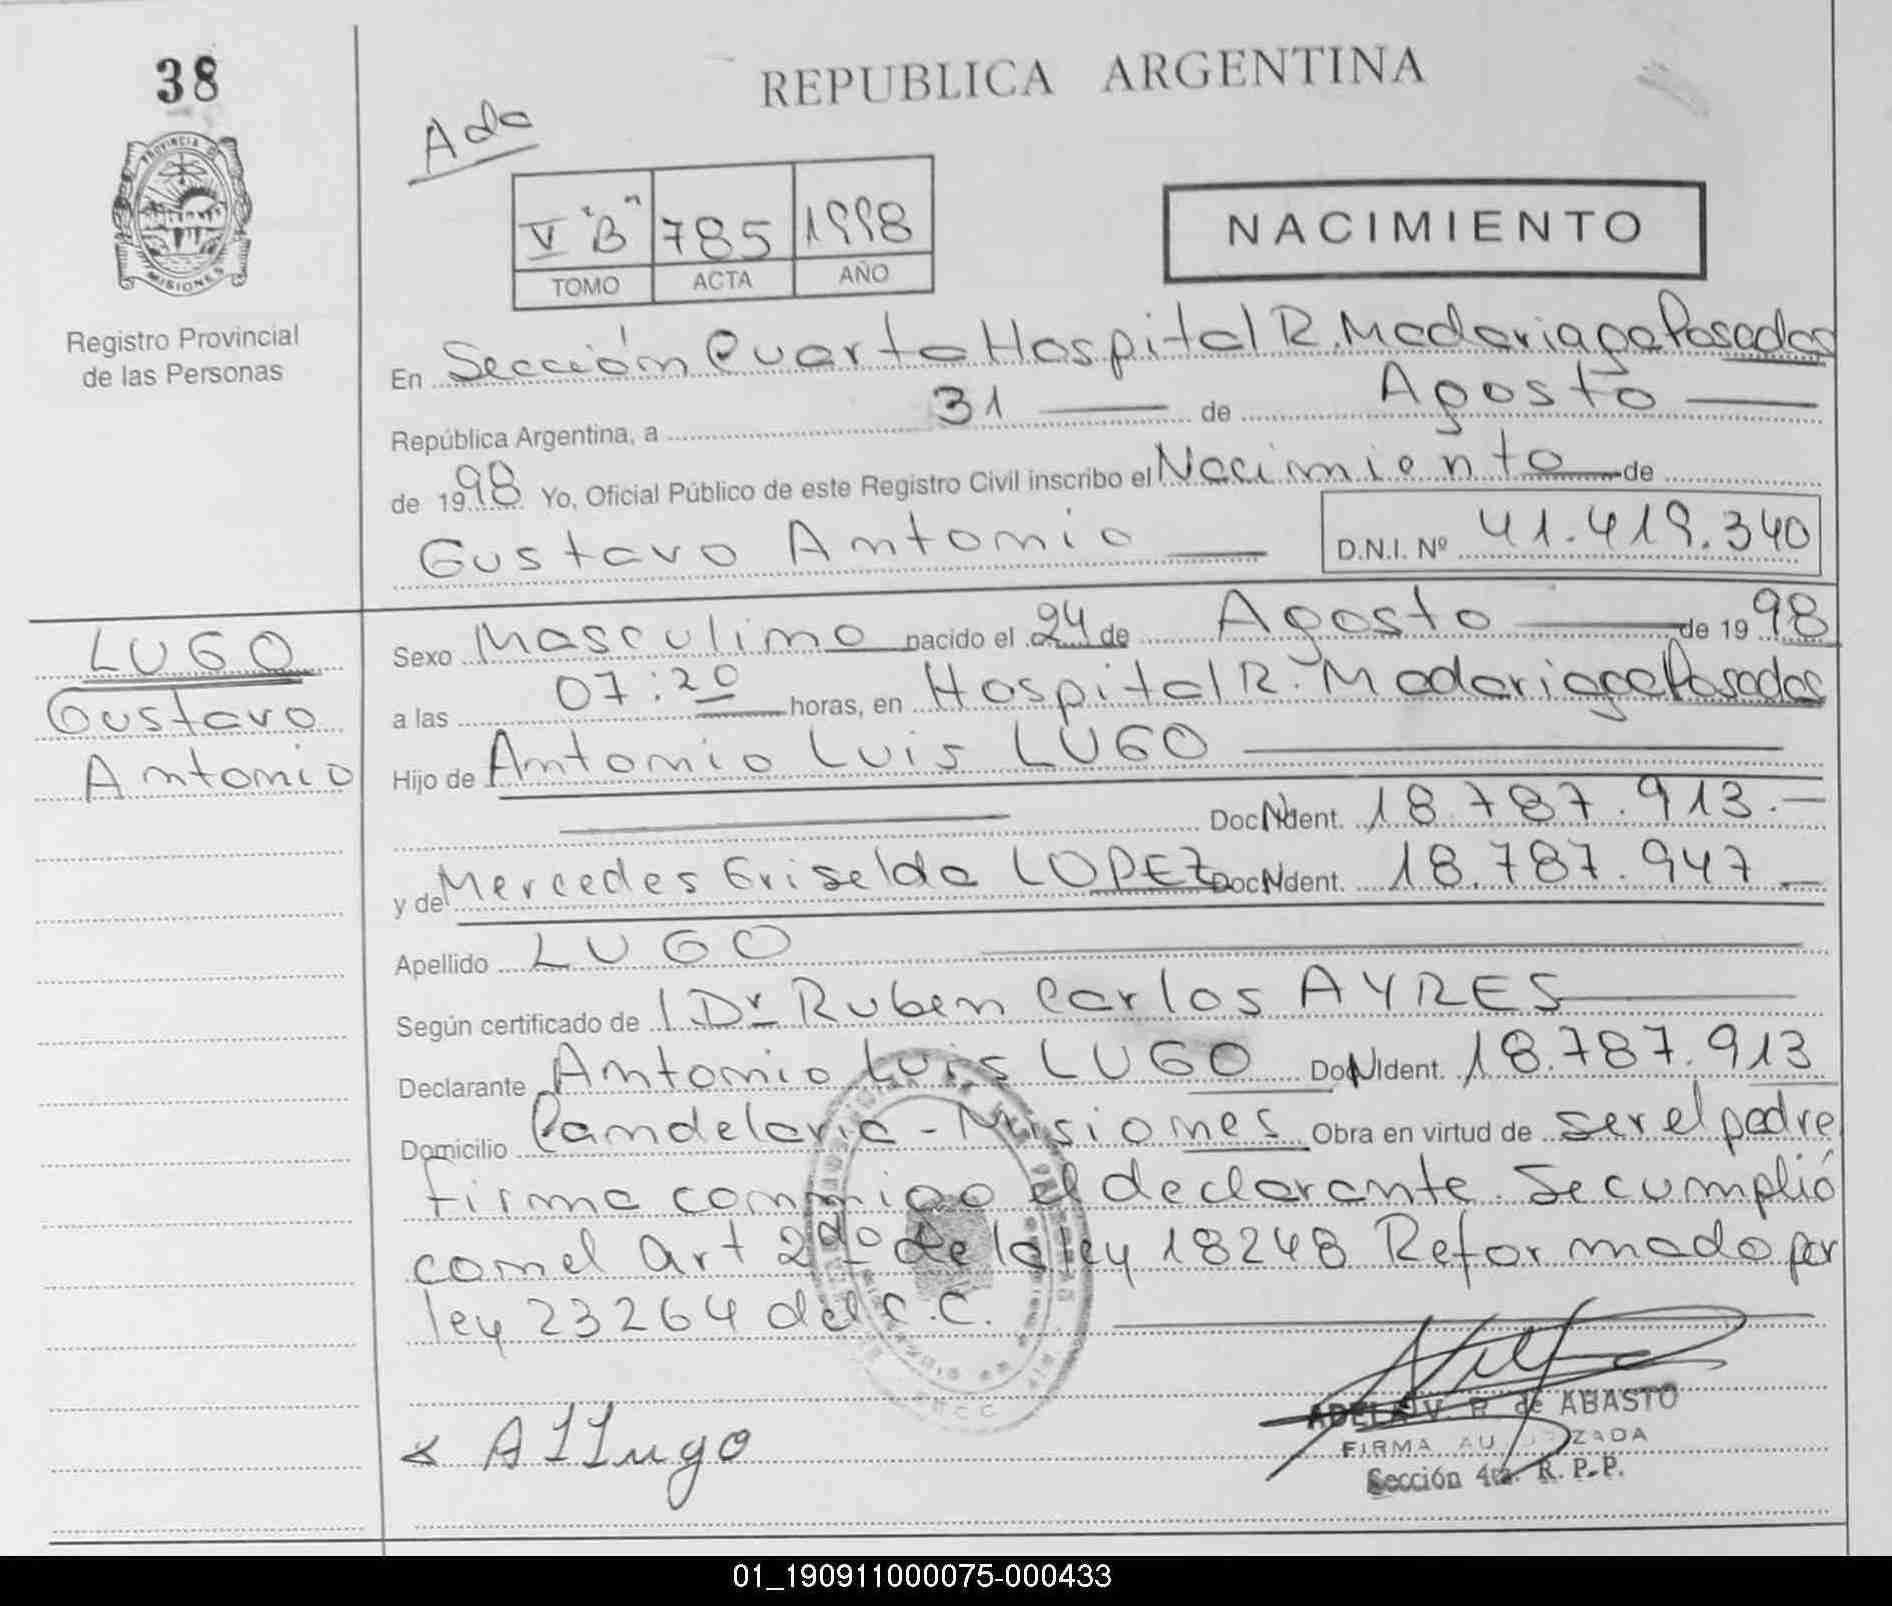 38
REPUBLICA ARGENTINA
Ada
PROVINCIA DE
MISIONES
V "B" 785 1998
TOMO ACTA AÑO
NACIMIENTO
Registro Provincial
de las Personas
En Sección Cuarta Hospital R. Madariaga Posadas
República Argentina, a 31 de Agosto
de 1998 Yo, Oficial Público de este Registro Civil inscribo el Nacimiento de
Gustavo Antonio D.N.I. Nº 41.419.340
LUGO
Gustavo
Antonio
Sexo Masculino nacido el 24 de Agosto de 1998
a las 07:20 horas, en Hospital R. Madariaga Posadas
Hijo de Antonio Luis LUGO
Doc N Ident. 18.787.913.-
y de Mercedes Griselda LOPEZ Doc N Ident. 18.787.947
Apellido LUGO
Según certificado de l Dr Ruben Carlos AYRES
Declarante Antonio Luis LUGO Doc N Ident. 18.787.913
Domicilio Candelaria - Misiones Obra en virtud de ser el padre
firma conmigo el declarante. Se cumplió
con el art 2do de la ley 18248 Reformado por
ley 23264 del C.C.
x A L Lugo
ADELA V. R. de ABASTO
FIRMA AUTORIZADA
Sección 4ta. R. P. P.
01_190911000075-000433